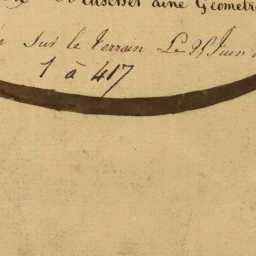 ainé Géometre
sur le terrain Le 25 Juin
1 à 417